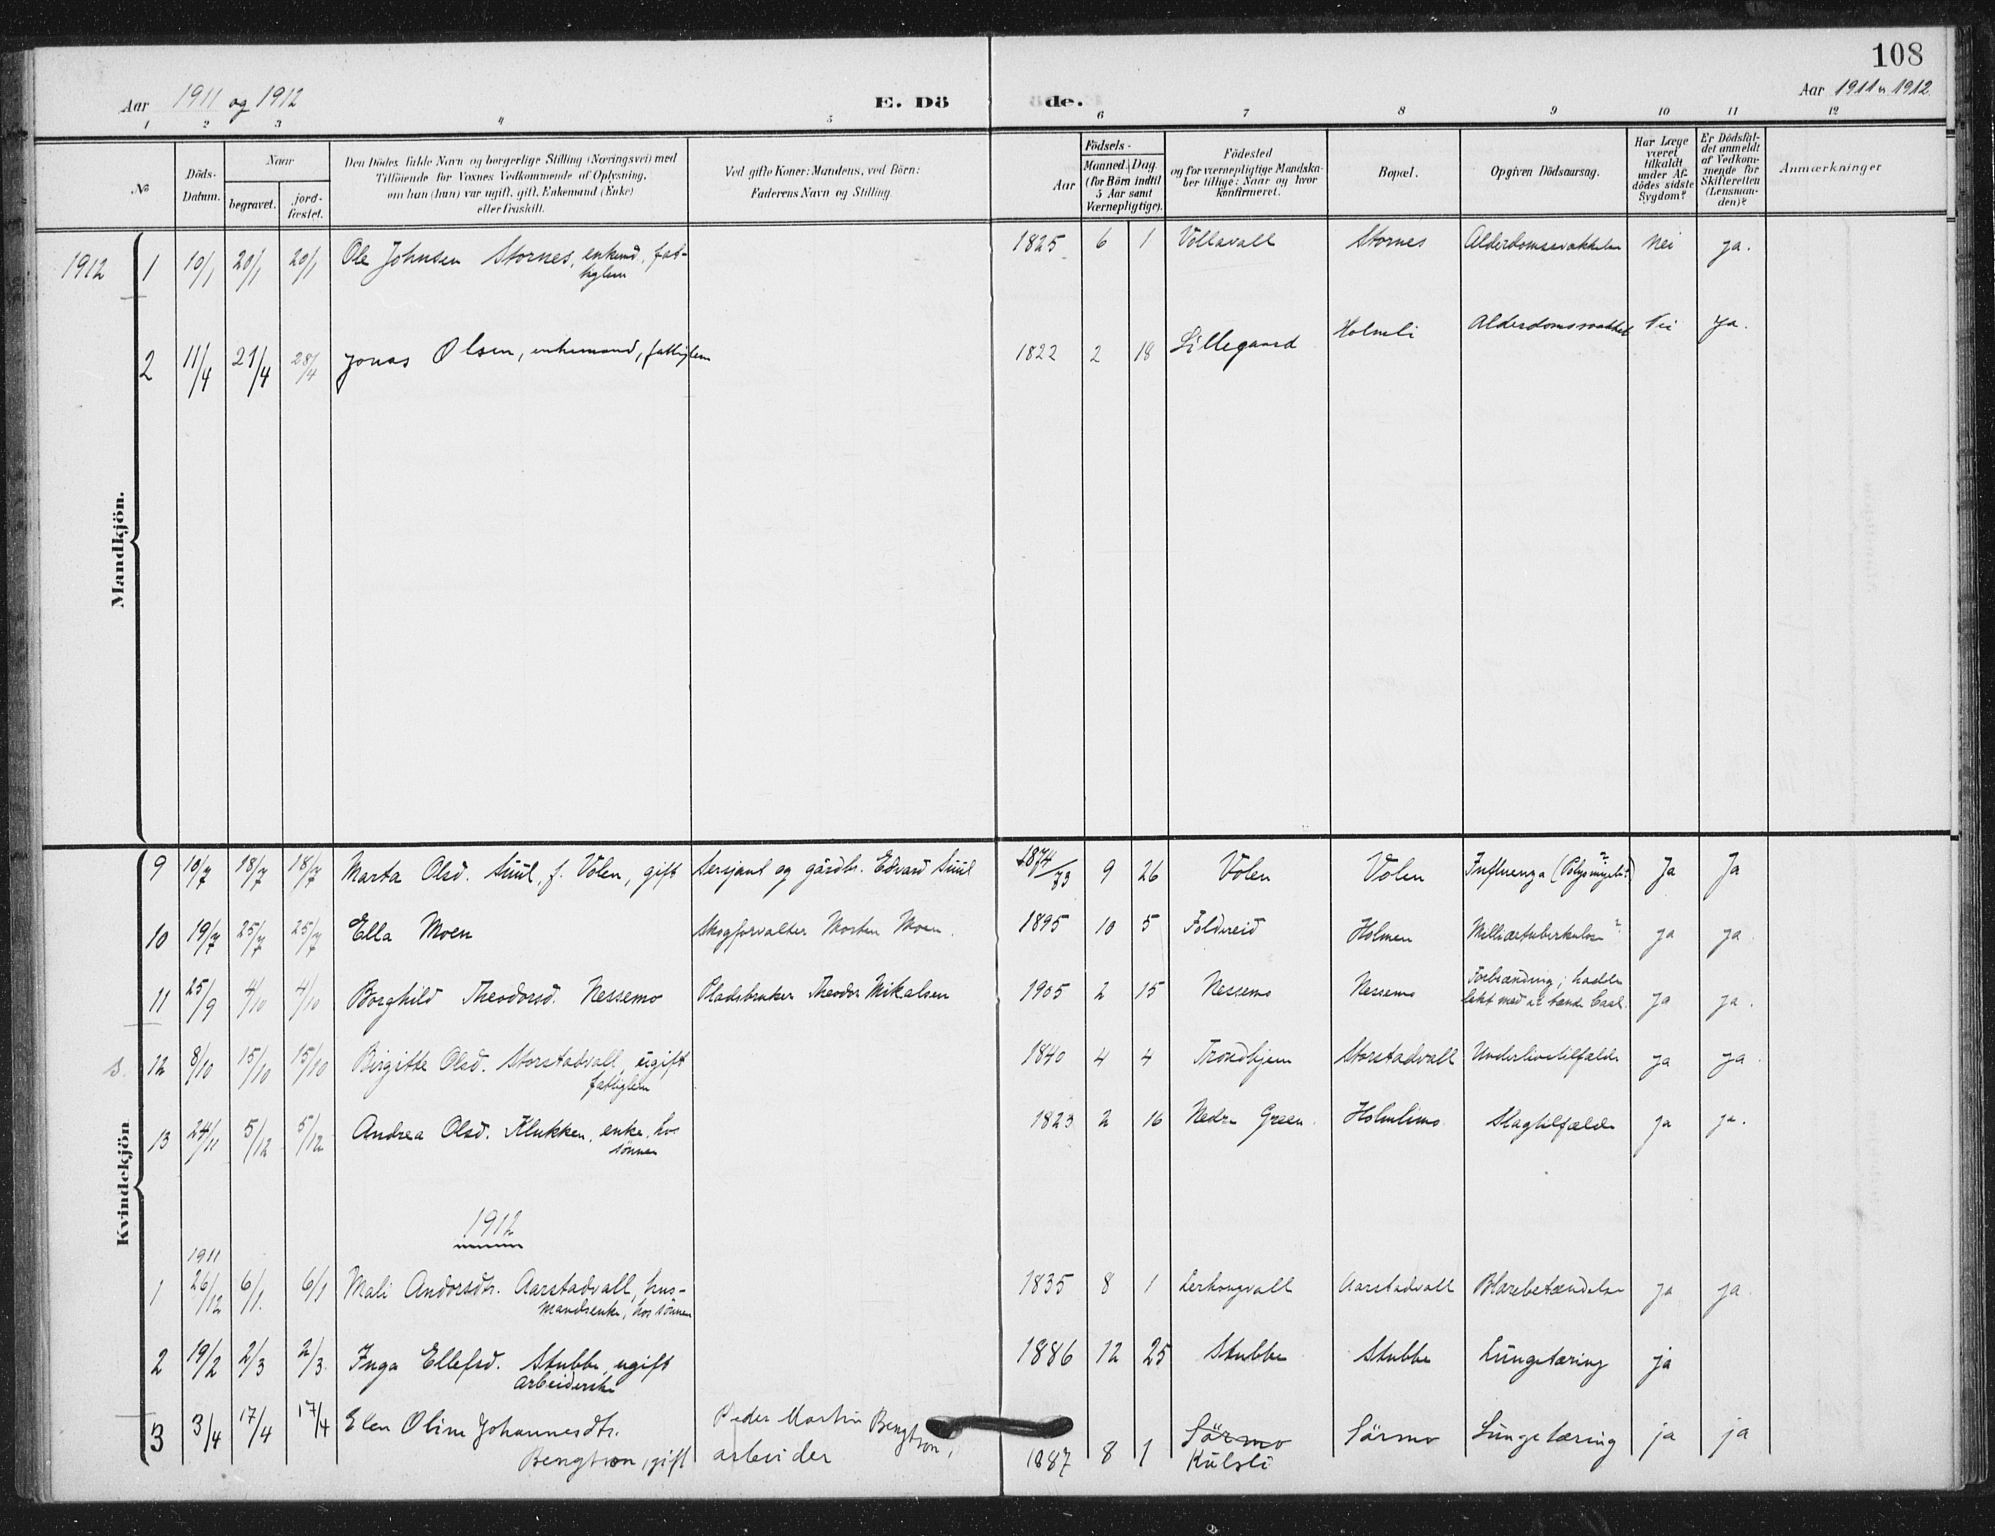 108
Aar 1911 og 1912
E. Dö
de.
Aar 1911 og 1912
1 2 3 4 5 6 7 8 9 10 11 12
No
Döds-
Datum.
Naar
begravet.
jord-
fæstet.
Den Dödes fulde Navn og borgerlige Stilling (Næringsvei) med
Tilföiende for Voxnes Vedkommende af Oplysning,
om han (hun) var ugift, gift, Enkemand (Enke)
eller fraskilt.
Ved gifte Koner: Mandens, ved Börn:
Faderens Navn og Stilling.
Födsels-
Aar
Maaned. Dag.
(for Börn indtil
5 Aar samt
Værnepligtige).
Födested
og for værnepligtige Mandska-
ber tillige: Naar og hvor
konfirmeret.
Bopæl.
Opgiven Dödsaarsag.
Har Læge
været
tilkaldt
under Af-
dödes sidste
Sygdom?
Er Dödsfal-
det anmeldt
af Vedkom-
mende for
Skifteretten
(Lensman-
den)?
Anmærkninger
Mandkjön.
1912 1 10/1 20/1 20/1 Ole Johnsen Stornes, enkemd., fat-
tiglem
1825 6 1 Vollavall Stornes Alderdomssvakkelse Nei ja.
2 11/4 21/4 28/4 Jonas Olsen, enkemand, fattiglem 1822 2 18 Lillegaard Holmli Alderdomssvakhet Nei ja.
Kvindekjön
9 10/7 18/7 18/7 Marta Olsd. Suul, f. Volen, gift Sersjant og gårdbr. Edvard Suul 1874/73 9 26 Volen Volen Influenza Ja Ja
10 19/7 25/7 25/7 Ella Moen Skogforvalter Morten Moen. 1895 10 5 Foldereid Holmen Milliærtuberkulose? ja ja
11 25/9 4/10 4/10 Borghild Theodorsd. Nessemo Pladsbruker Theodor Mikalsen 1905 2 15 Nessemo Nessemo Forbrænding; hadde
lekt med at tænde baal. ja ja.
s. 12 8/10 15/10 15/10 Birgitte Olsd. Storstadvall, ugift
fattiglem
1840 4 4 Trondhjem Storstadvall Underlivstilfælde ja ja
13 24/11 5/12 5/12 Andrea Olsd. Klukken, enke, hos
sønnen
1823 2 16 Nedre Green. Holmlimo. Slagtilfælde ja ja.
1912
1911
1 26/12 6/1. 6/1 Mali Andorsdtr. Aarstadvall, hus-
mandsenke, hos sönnen
1835 8 1 Lerhaugvall Aarstadvall Blærebetændelse ja ja.
2 19/2 2/3 2/3. Inga Ellefsd. Stubbe, ugift
arbeiderske
1886 12 25 Stubbe Stubbe Lungetæring ja
3 3/4 17/4 17/4 Elen Oline Johannesdtr.
Bengtson, gift
Peder Martin Bengtson,
arbeider
1887 8 1 Sörmo
Kulsli
Sörmo Lungetæring ja ja